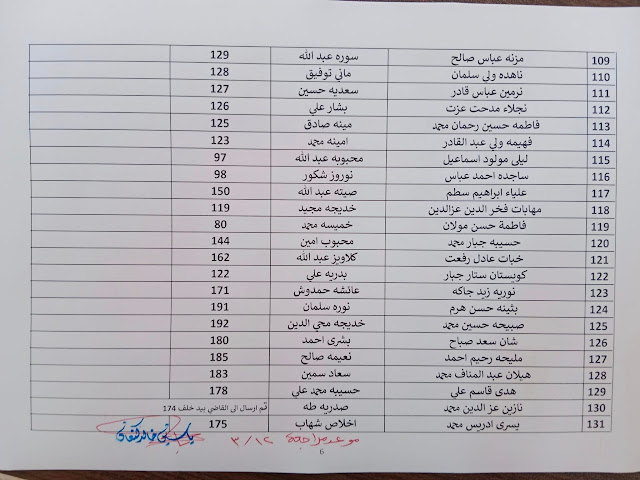 109 مزنه عباس صالح سوره عبد الله 129
110 ناهده ولي سلمان ماني توفيق 128
111 نرمين عباس قادر سعديه حسين 127
112 نجلاء مدحت عزت بشار علي 126
113 فاطمه حسين رحمان محمد مينه صادق 125
114 فهيمه ولي عبد القادر امينه محمد 123
115 ليلى مولود اسماعيل محبوبه عبد الله 97
116 ساجده احمد عباس نوروز شكور 98
117 علياء ابراهيم سطم صيته عبد الله 150
118 مهابات فخر الدين عزالدين خديجه مجيد 119
119 فاطمة حسن مولان خميسه محمد 80
120 حسيبه جبار محمد محبوب امين 144
121 خبات عادل رفعت كلاويز عبد الله 162
122 كويستان ستار جبار بدريه علي 122
123 نوريه زيد جاكه عائشه حمدوش 171
124 بثينه حسن هرم نوره سلمان 191
125 صبيحه حسين محمد خديجه محي الدين 192
126 شان سعد صباح بشرى احمد 180
127 مليحه رحيم احمد نعيمه صالح 185
128 هيلان عبد المناف محمد سعاد سمين 183
129 هدى قاسم علي حسيبه محمد علي 178
130 نازين عز الدين محمد صدريه طه تم ارسال الى القاضي بيد خلف 174
131 يسرى ادريس محمد اخلاص شهاب 175
موعد مراجعة ٣/١٢
6